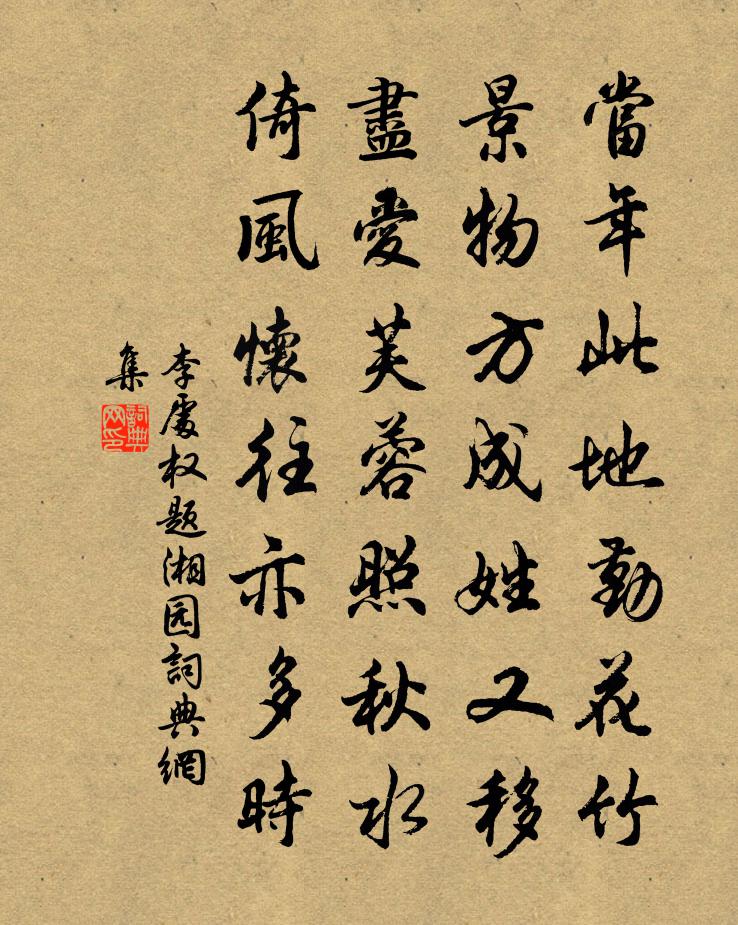 當年此地勤花竹
景物方成姓又移
盡愛芙蓉照秋水
倚風懷往亦多時
李處权题湘园詞典網
集
詞典网印